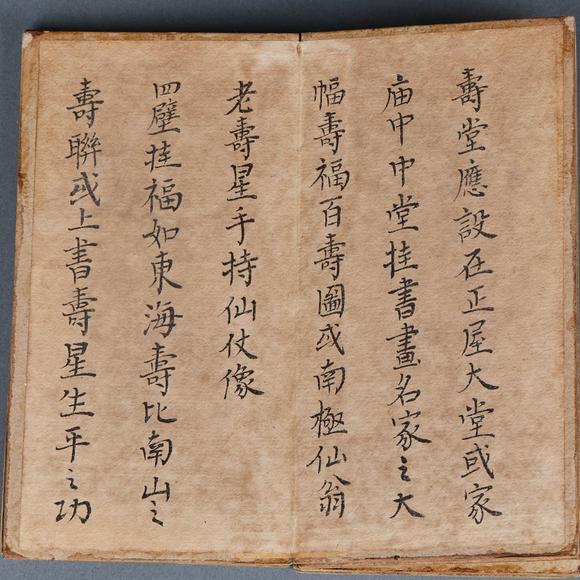 壽堂應設在正屋大堂或家
庙中中堂挂書畫名家之大
幅壽福百壽圖或南極仙翁
老壽星手持仙仗像
四壁挂福如東海壽比南山之
壽聯或上書壽星生平之功